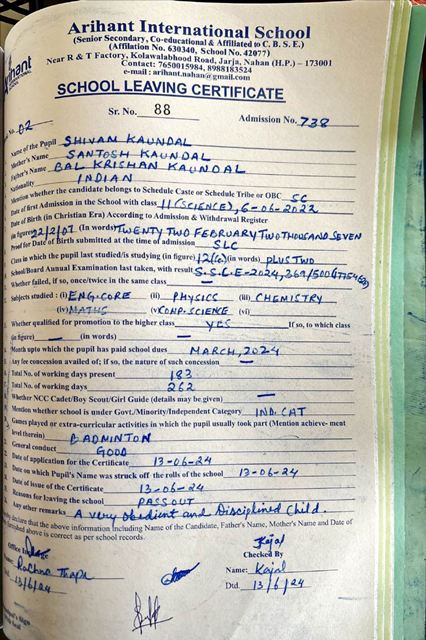 Arihant International School
(Senior Secondary, Co-educational & Affiliated to C. B. S. E.)
(Affilation No. 630340, School No. 42077)
Near R & T Factory, Kolawalabhood Road, Jarja, Nahan (H.P.) – 173001
Contact: 7650015984, 8988183524
e-mail : arihant.nahan@gmail.com
SCHOOL LEAVING CERTIFICATE
Sr. No. 88 Admission No. 738
No. 02
Name of the Pupil SHIVAM KAUNDAL
Mother's Name SANTOSH KAUNDAL
Father's Name BAL KRISHAN KAUNDAL
Nationality INDIAN
Mention whether the candidate belongs to Schedule Caste or Schedule Tribe or OBC SC
Date of first Admission in the School with class 11 (SCIENCE), 6-06-2022
Date of Birth (in Christian Era) According to Admission & Withdrawal Register
(in figure) 22/2/07 (In words) TWENTY TWO FEBRUARY TWO THOUSAND SEVEN
Proof for Date of Birth submitted at the time of admission SLC
Class in which the pupil last studied/is studying (in figure) 12(th) (in words) PLUS TWO
School/Board Annual Examination last taken, with result S.S.C.E-2024, 369/500
Whether failed, if so, once/twice in the same class —
Subjects studied : (i) ENG.CORE (ii) PHYSICS (iii) CHEMISTRY
(iv) MATHS (v) COMP. SCIENCE (vi)
Whether qualified for promotion to the higher class YES If so, to which class
(in figure) — (in words) —
Month upto which the pupil has paid school dues MARCH, 2024
Any fee concession availed of; if so, the nature of such concession —
Total No. of working days present 183
Total No. of working days 262
Whether NCC Cadet/Boy Scout/Girl Guide (details may be given) —
Mention whether school is under Govt./Minority/Independent Category IND. CAT
Games played or extra-curricular activities in which the pupil usually took part (Mention achieve- ment
level therein) BADMINTON
General conduct GOOD
Date of application for the Certificate 13-06-24
Date on which Pupil's Name was struck off the rolls of the school 13-06-24
Date of issue of the Certificate 13-06-24
Reasons for leaving the school PASSOUT
Any other remarks A very obedient and Disciplined Child.
declare that the above information including Name of the Candidate, Father's Name, Mother's Name and Date of
furnished above is correct as per school records.
Office
Kajal
Checked By
Name: Kajal
Dtd. 13/6/24
Rachna Thapa
Dtd. 13/6/24